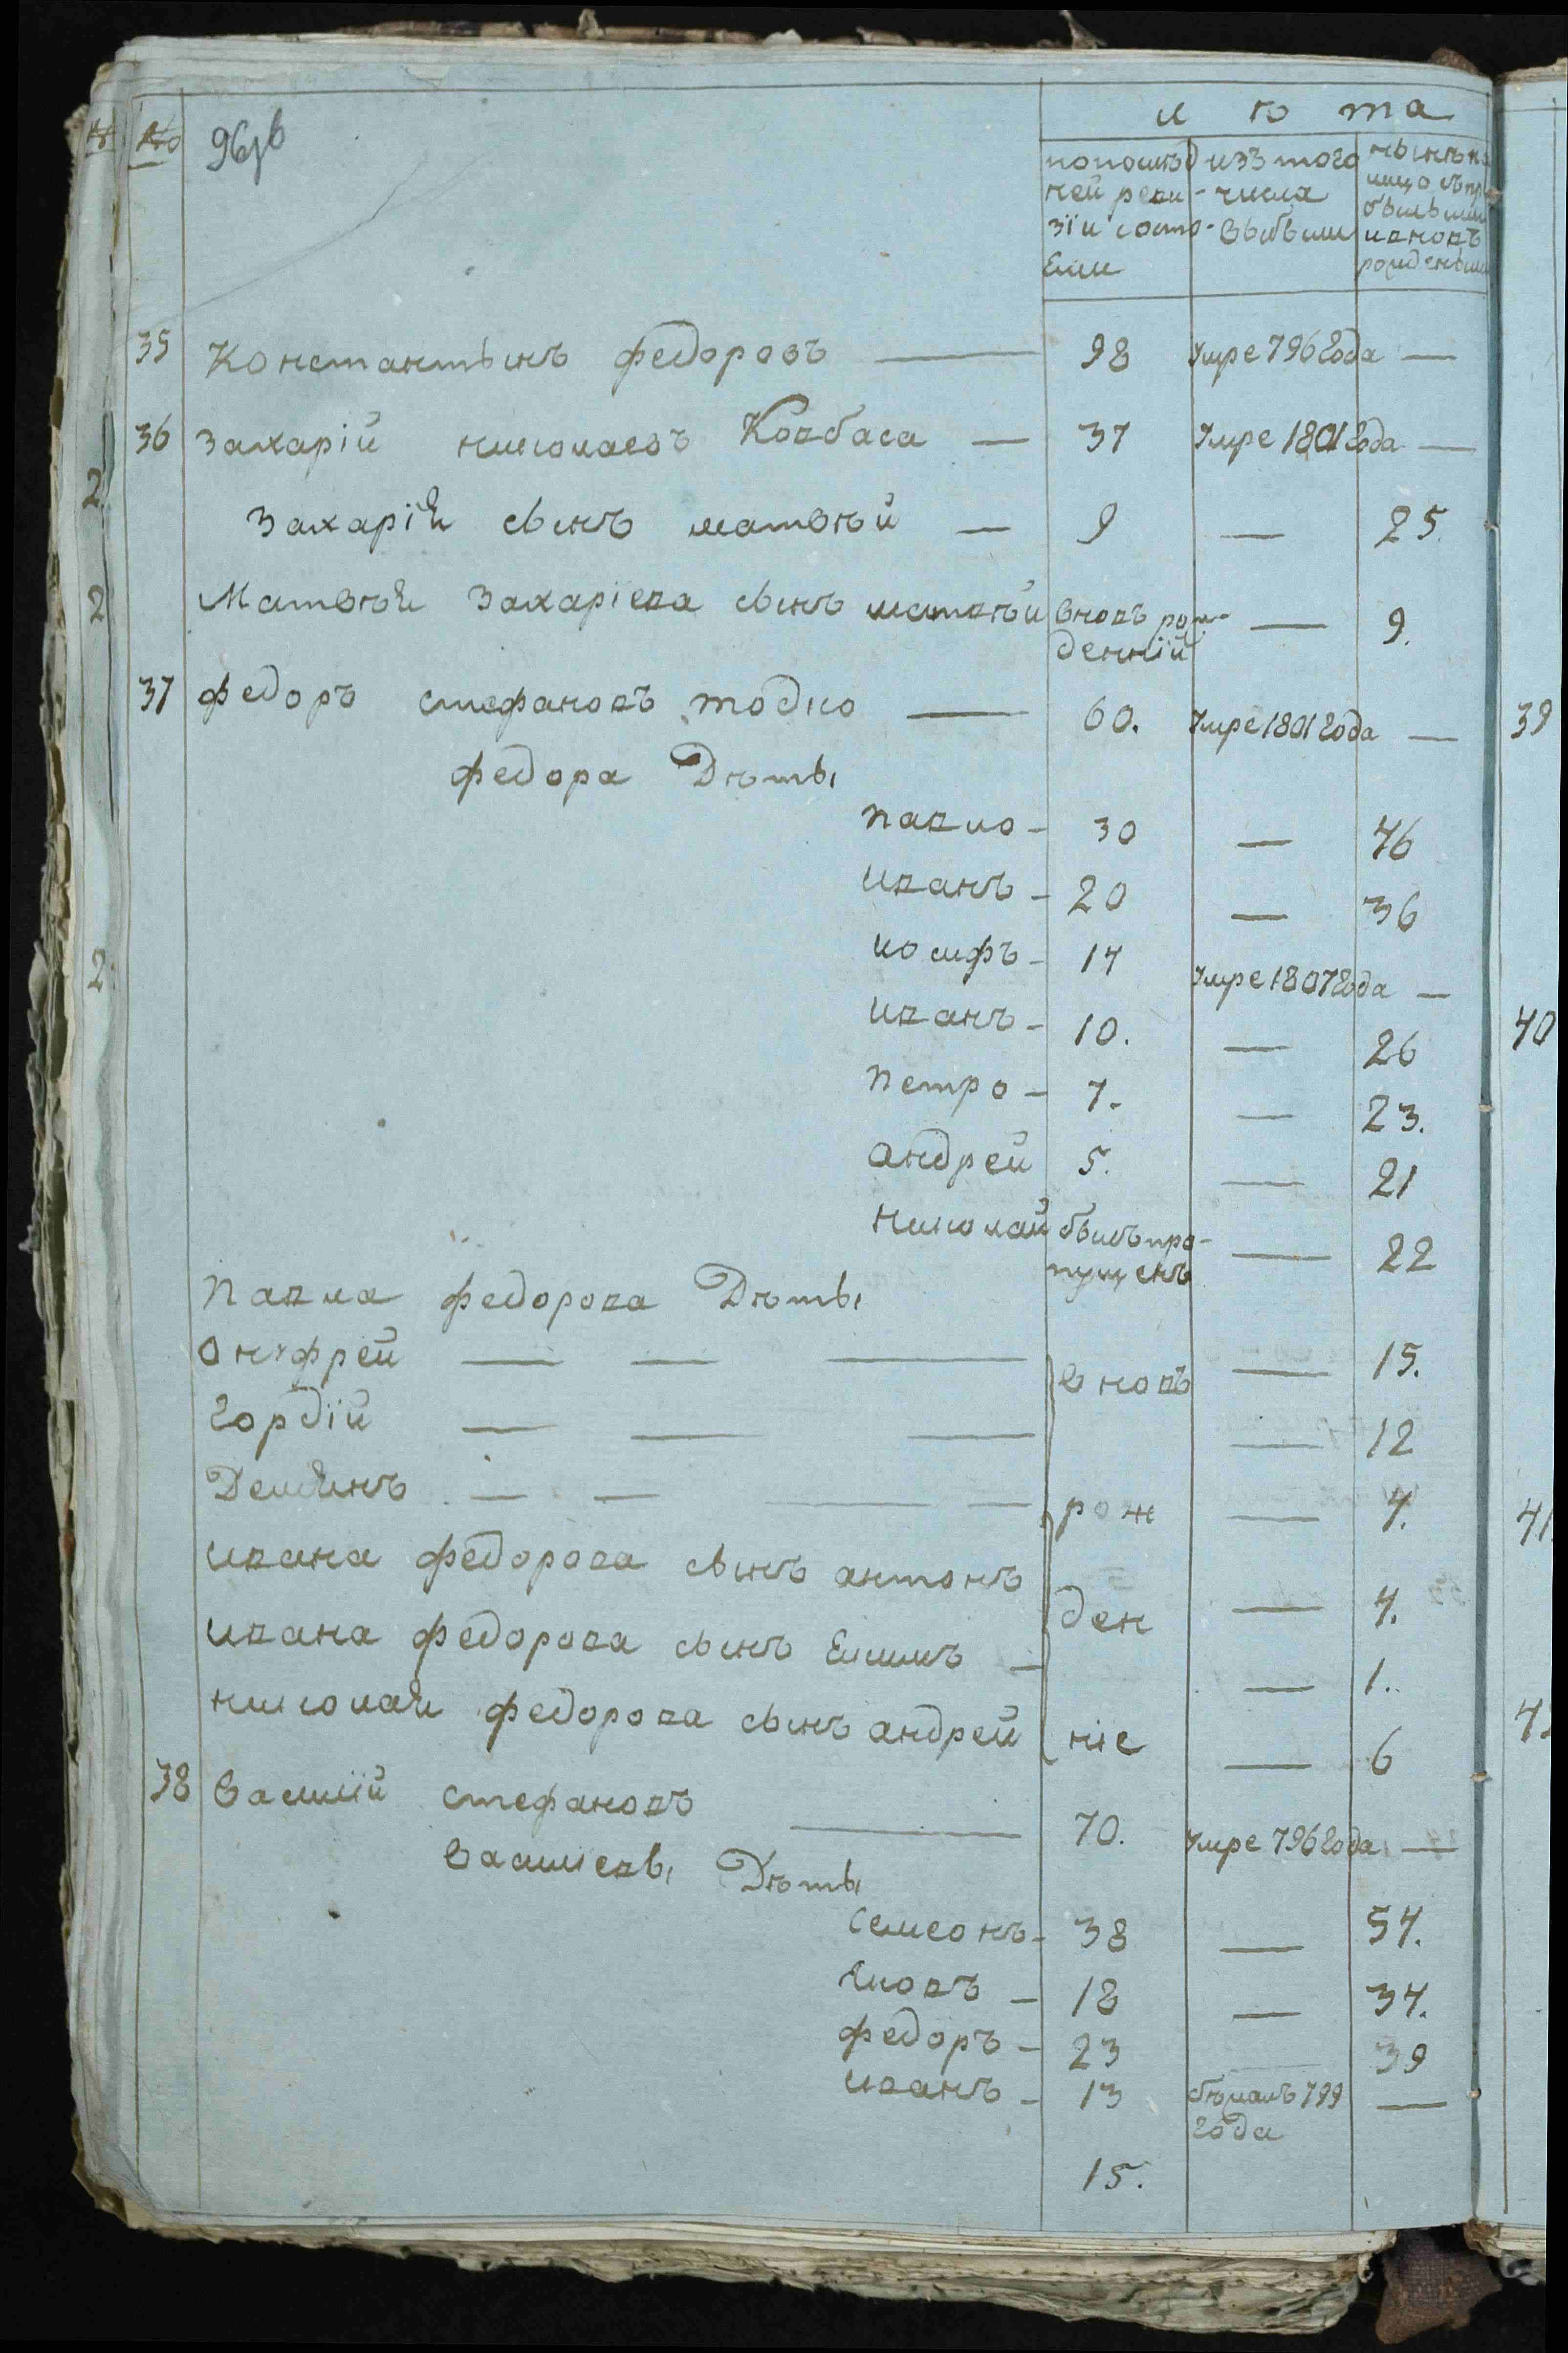 № 96зв
лѣта
попослѣд
ней реви-
зїи состо-
яли
изъ того
числа
выбыли
нынѣ на
лицо съ пр
былыми
ивновь
рожденными
35 Константынъ федоровъ — 98 Умре 796 года —
36 Захарій николаевъ Ковбаса — 37 Умре 1801 года —
2. Захарія сынъ матвѣй — 9 — 25.
2 Матвѣя Захарїева сынъ матвѣй вновь рож-
денній — 9.
37 федоръ стефановъ модло — 60. Умре 1801 года — 39
федора Дѣты
павло — 30 — 46
иванъ — 20 — 36
2. иосифъ — 14 Умре 1807 года —
иванъ — 10. — 26 40
петро — 7. — 23.
андрей 5. — 21
николай былъ про-
пущенъ — 22
павла федорова Дѣты
онуфрей — — — вновь — 15.
гордїй — — — — 12
Демянъ — — — — рож — 4. 41
ивана федорова сынъ антонъ ден — 4.
ивана федорова сынъ Якимъ — — 1.
николая федорова сынъ андрей ніе — 6
38 василїй стефановъ — 70. Умре 796 года —
василіевы Дѣты
семеонъ — 38 — 54.
яковъ — 18 — 34.
федоръ — 23 — 39
иванъ — 13 бѣжалъ 799
года —
15.